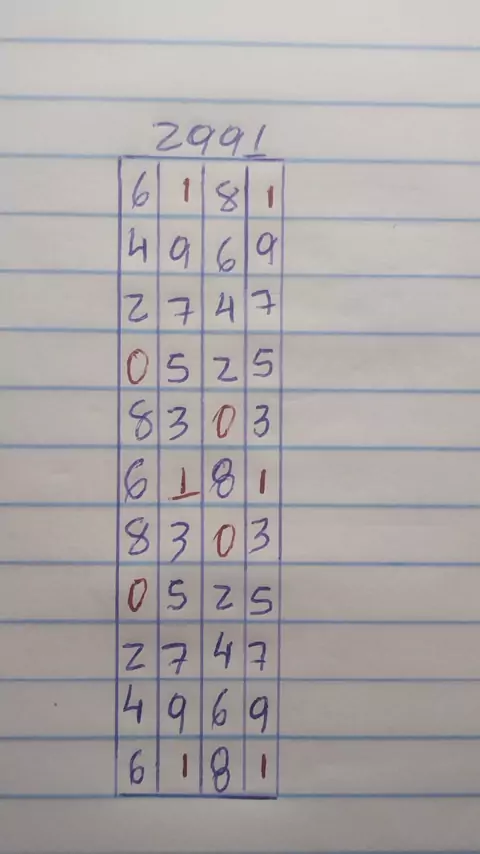 2991
6 1 8 1
4 9 6 9
2 7 4 7
0 5 2 5
8 3 0 3
6 1 8 1
8 3 0 3
0 5 2 5
2 7 4 7
4 9 6 9
6 1 8 1